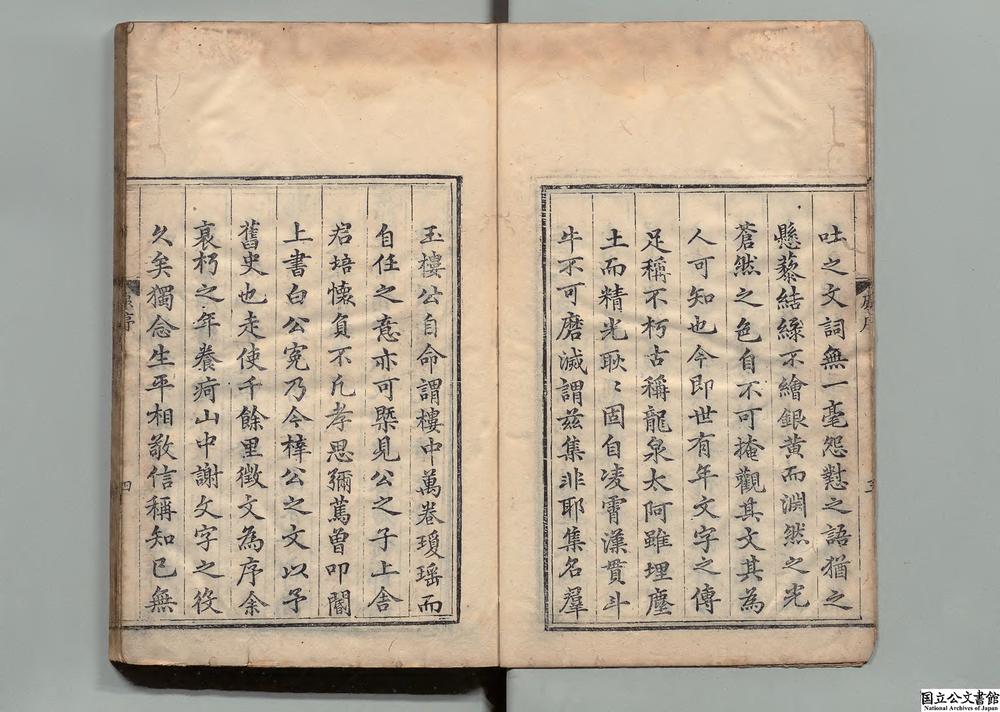 吐之文詞無一毫怨懟之語猶之
懸藜結綠不繪銀黃而淵然之光
蒼然之色自不可掩觀其文其為
人可知也今即世有年文字之傳
足稱不朽古稱龍泉太阿雖埋塵
土而精光耿〻固自凌霄漢貫斗
牛不可磨滅謂兹集非耶集名羣
三
玉樓公自命謂樓中萬卷瓊瑶而
自任之意亦可槩見公之子上舍
君培懷負不凡孝思彌篤曾叩閽
上書白公寃乃今梓公之文以予
舊史也走使千餘里徵文為序余
衰朽之年養痾山中謝文字之役
久矣獨念生平相敬信稱知已無
序
四
国立公文書館
National Archives of Japan